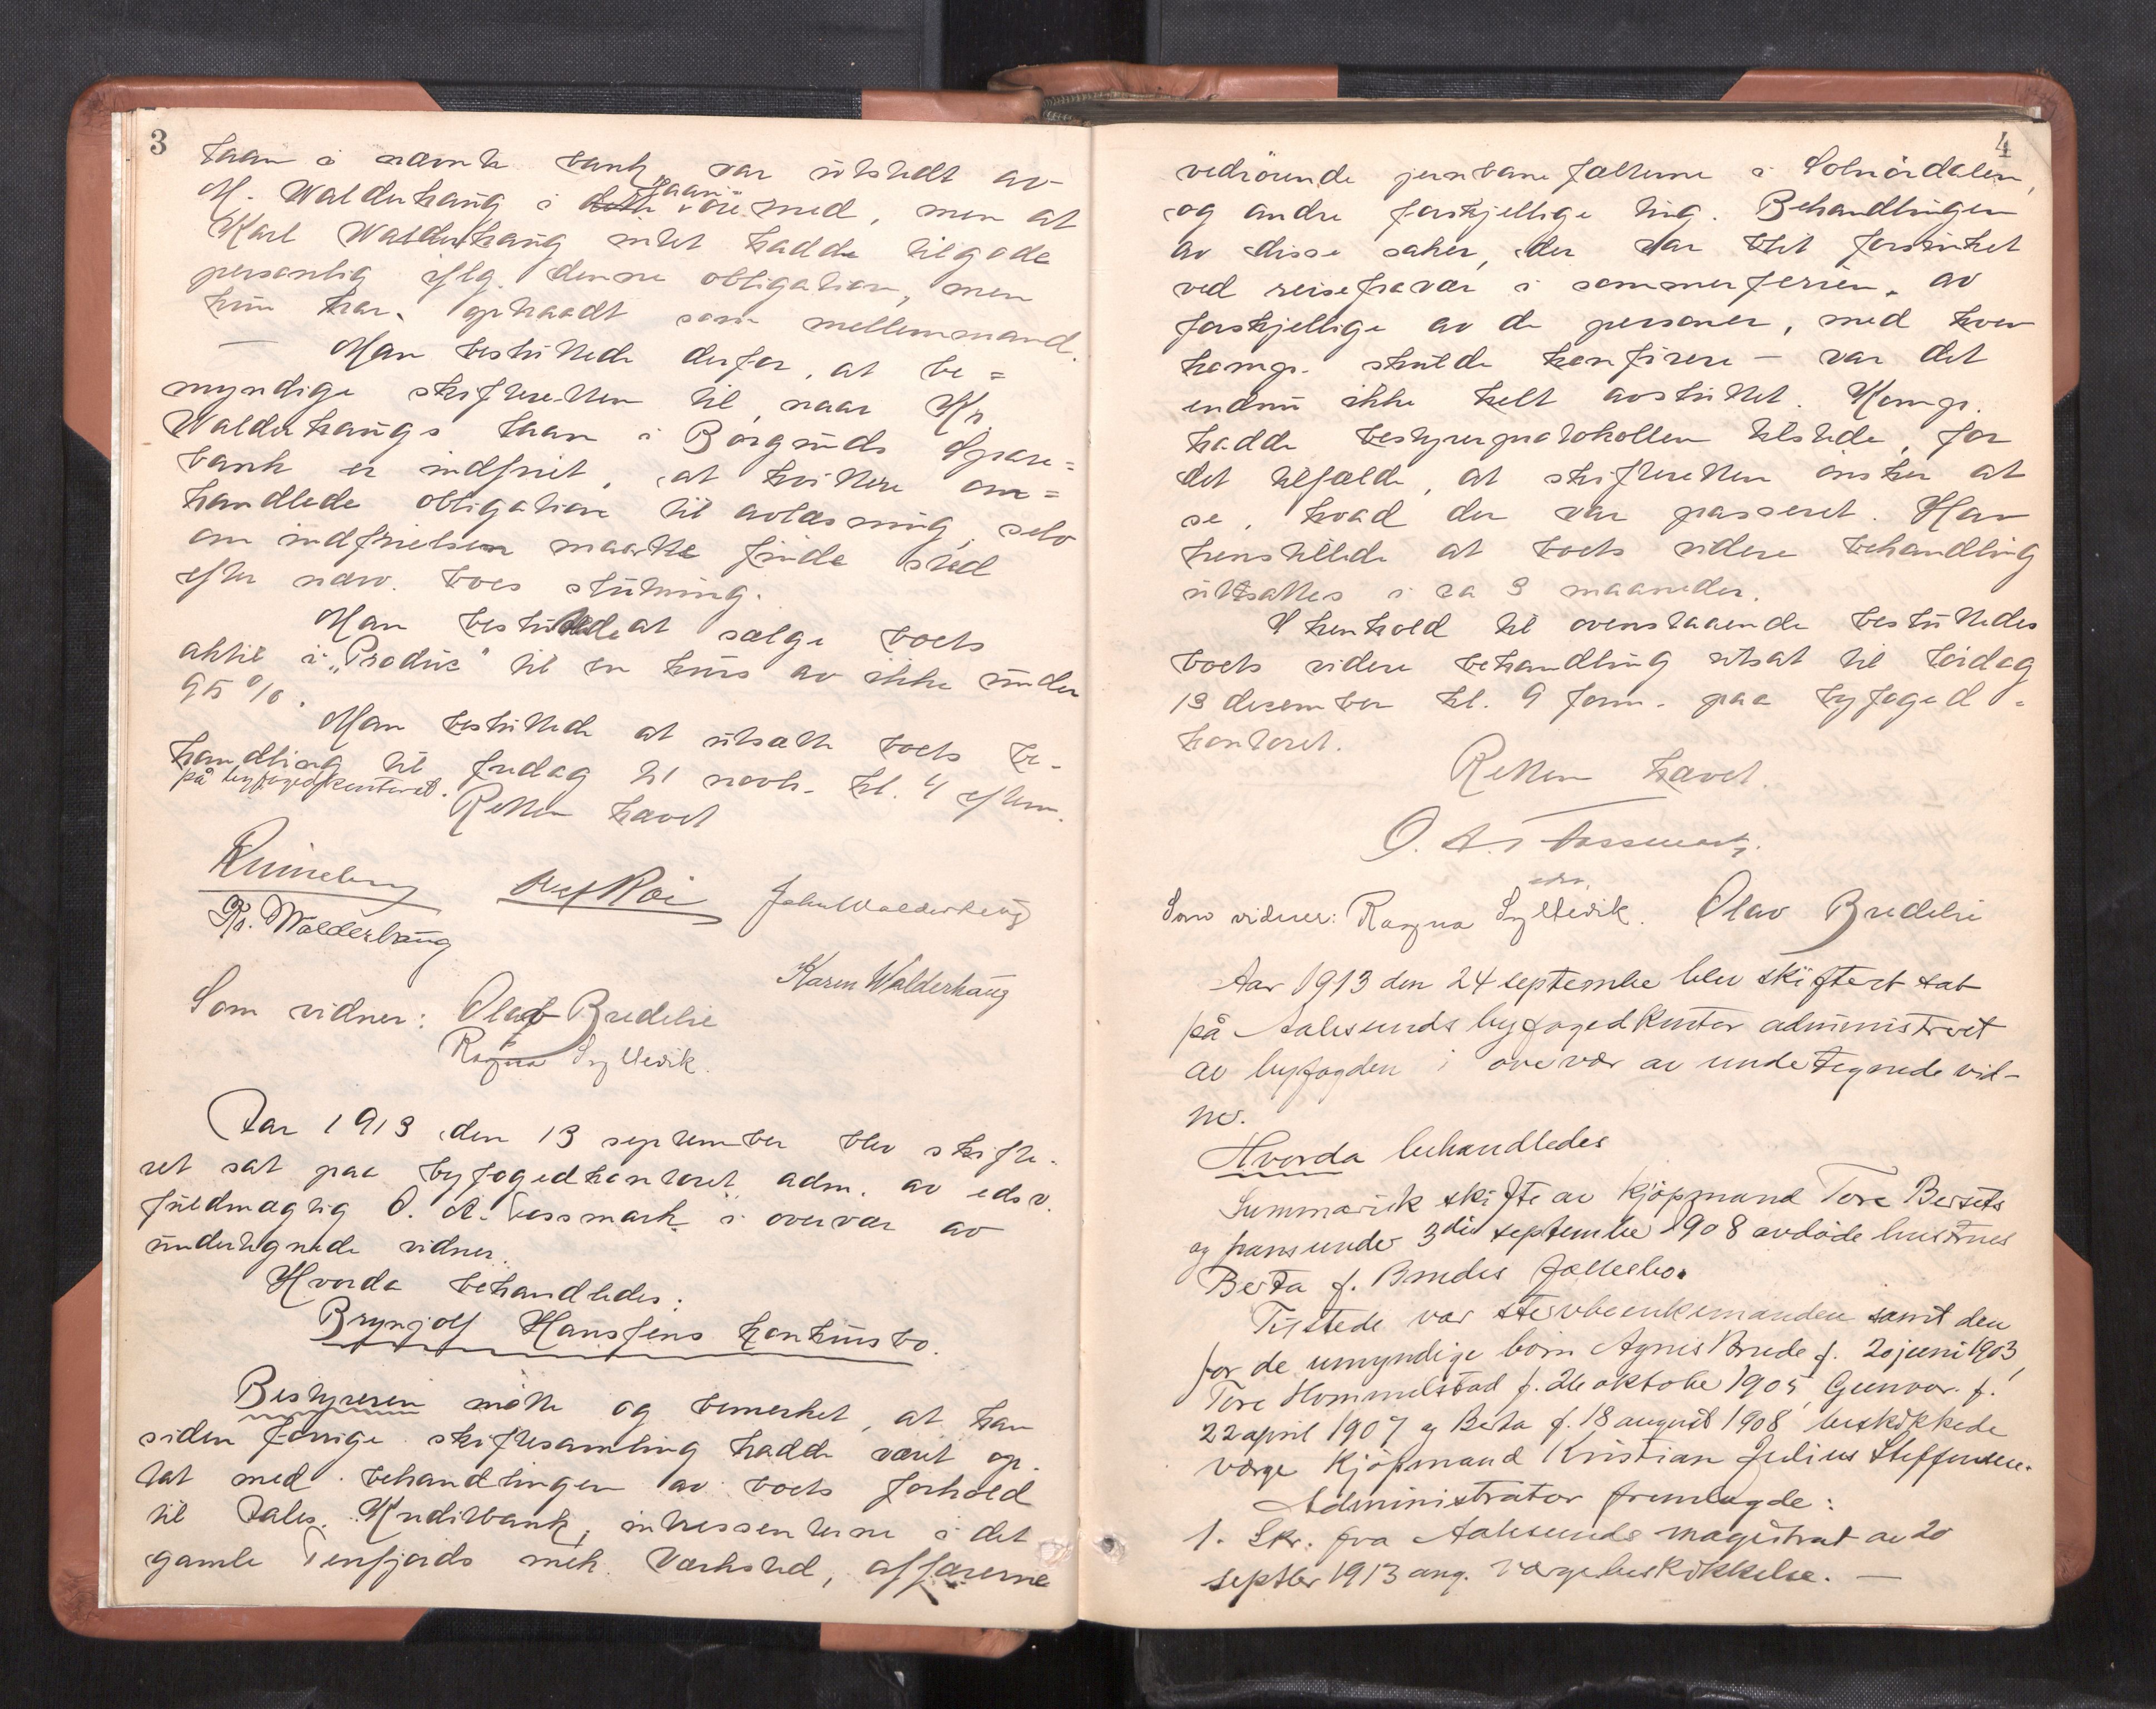 3
laan i nævnte bank var utstedt av
M. Walderhaug i laanøiemed, men at
Karl Walderhaug intet hadde tilgode
personlig iflg. denne obligation, men
kun har optraadt som mellemmand.
Man besluttede derfor, at be=
myndige skifteretten til, naar Kr.
Walderhaugs laan i Borgunds Spare=
bank er indfriet, at kvittere om=
handlede obligation til avlæsning, selv
om indfrielsen maatte finde sted
efter nærv. boes slutning.
Man besluttede at sælge boets
aktie i "Produc" til en kurs av ikke under
95 %.
Man besluttede at utsætte boets be-
handling til fredag 21 novb. kl. 4 efterm.
på byfogedkontoret.
Retten hævet
Kr. Walderhaug
John Walderhaug
Karen Walderhaug
Som vidner: Olaf Bredeli
Ragna Syltevik.
Aar 1913 den 13 september blev skifte-
ret sat paa byfogedkontoret adm. av edsv.
fuldmægtig O. A. Tassmark i overvær av
undertegnede vidner.
Hvorda behandledes:
Brynjolf Hanssens konkursbo.
Bestyreren møtte og bemerket, at han
siden forrige skiftesamling hadde været op-
tat med behandlingen av boets forhold
til Aales. Kreditbank, interessenterne i det
gamle Tenfjords mek. Værksted, affærerne
4
vedrørende jernbanefælterne i Solnørdalen,
og andre forskjellige ting. Behandlingen
av disse saker, der var blit forsinket
ved reisefravær i sommerferien, av
forskjellige av de personer, med hvem
komp. skulde konferere – var det
endnu ikke helt avsluttet. Komp.
hadde bestyrerprotokollen tilstede, for
det tilfælde, at skifteretten ønsker at
se, hvad der var passeret. Han
henstillede at boets videre behandling
utsattes i ca 3 maaneder.
I henhold til ovenstaaende besluttedes
boets videre behandling utsat til lørdag
13 december kl. 9 form. paa byfoged=
kontoret.
Retten hævet.
O. A. Tassmark.
edsv.
Som vidner: Ragna Syltevik. Olav Bredeli
Aar 1913 den 24 septembe blev skifteret sat
på Aalesunds byfogedkontor administreret
av byfogden i overvær av undetegnede vid-
ner.
Hvorda behandledes
Summarisk skifte av kjøpmand Tore Bersets
og hans under 3die septembe 1908 avdøde hustrues
Berta f. Brudes fællesbo.
Tilstede var stervboenkemanden samt den
for de umyndige børn Agnes Brude f. 20 juni 1903,
Tore Hommelstad f. 26 oktobe 1905, Gunvor f.
22 april 1907 og Berta f. 18 august 1908 beskikkede
værge kjøpmand Kristian Julius Steffensen.
Administrator fremlagde:
1. Skr. fra Aalesunds magistrat av 20
septbr 1913 ang. værgebeskikkelse. —